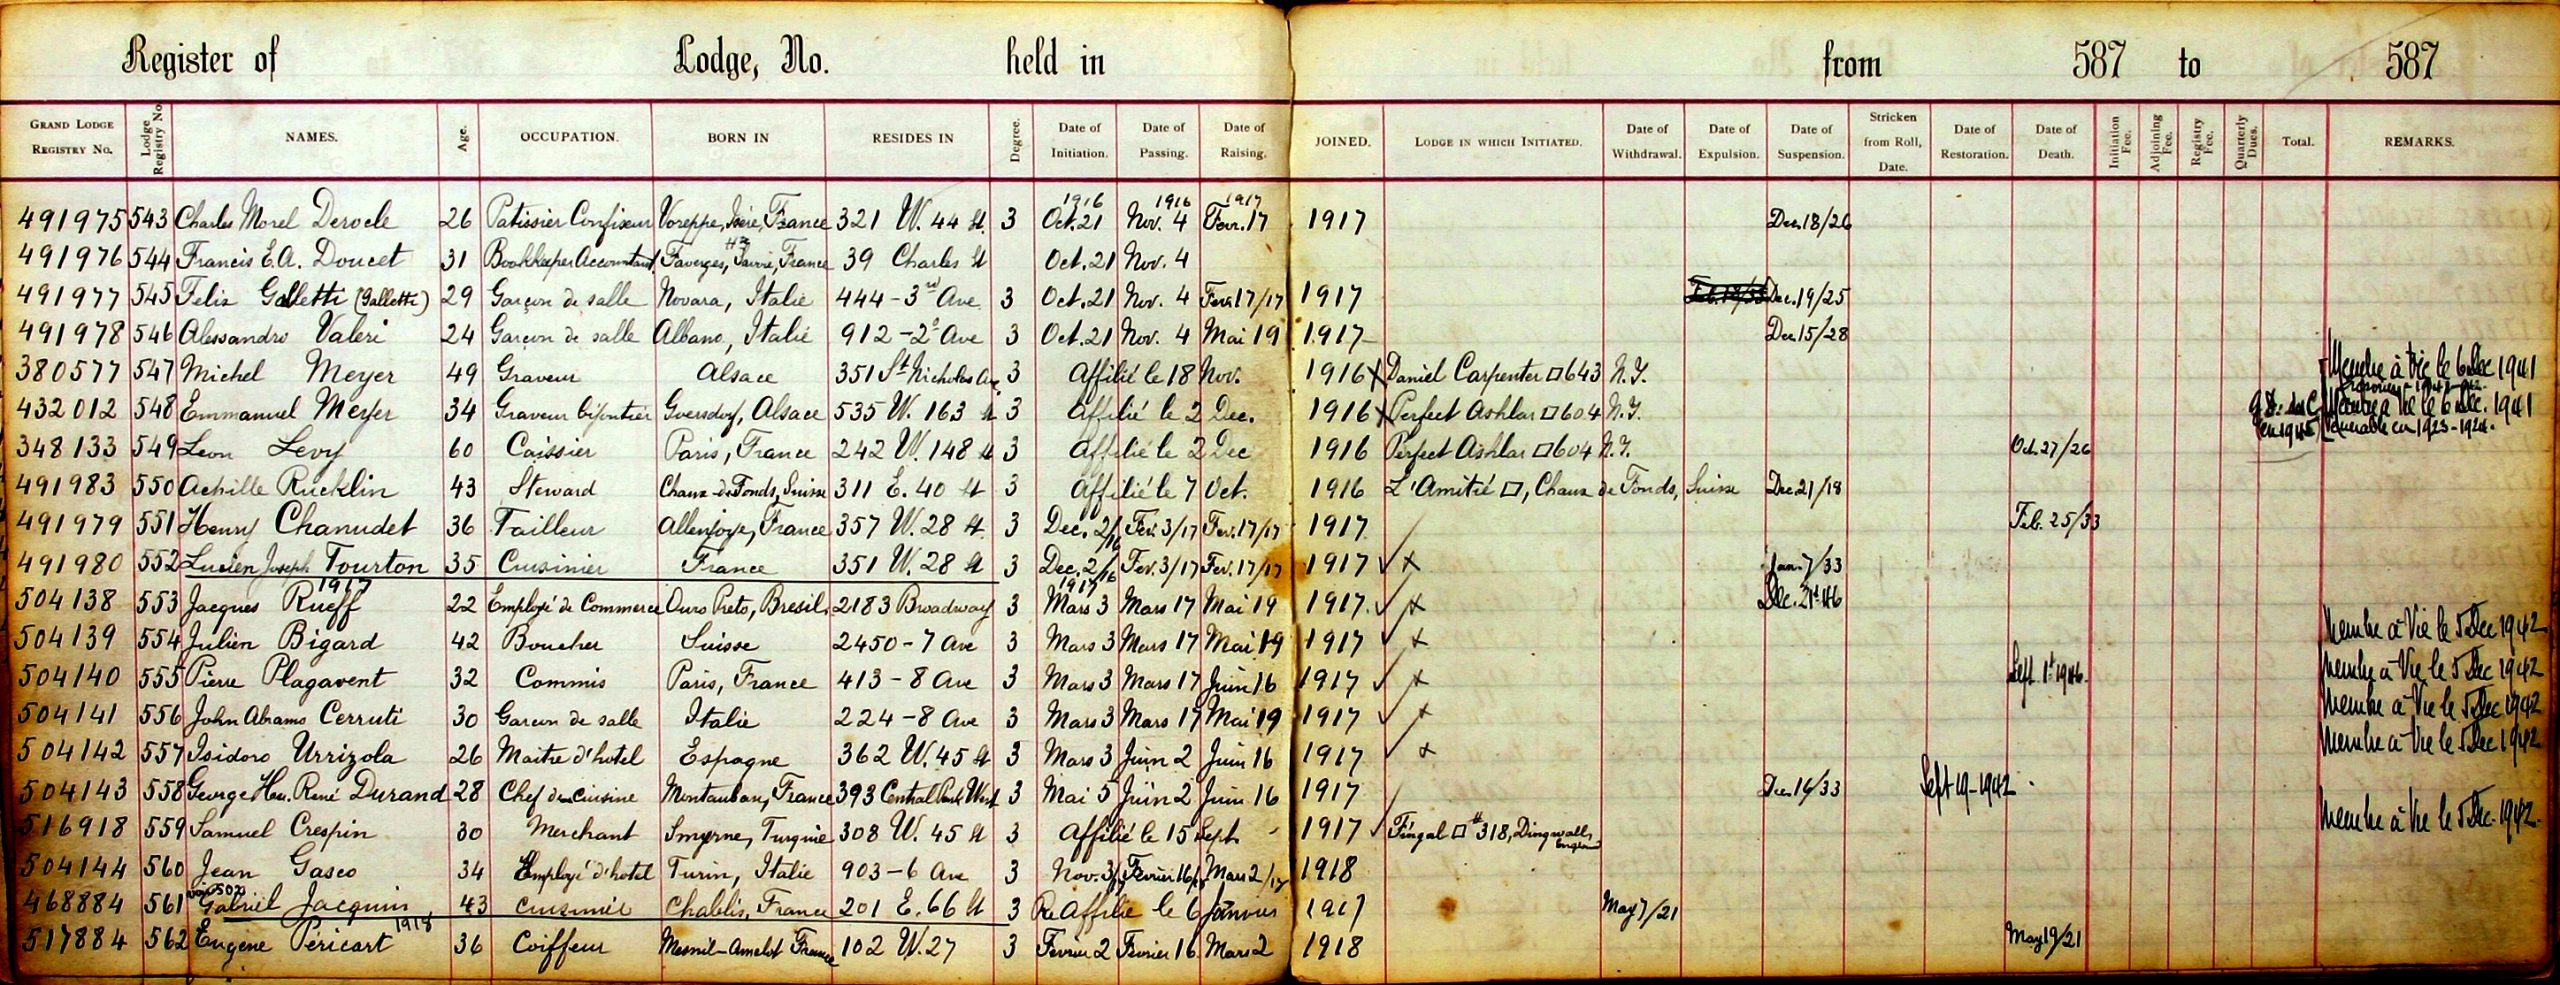 Register of Lodge, No. held in from 587 to 587
GRAND LODGE REGISTRY NO. Lodge Registry No. NAMES. Age. OCCUPATION. BORN IN RESIDES IN Degree. Date of Initiation. Date of Passing. Date of Raising. JOINED. LODGE IN WHICH INITIATED. Date of Withdrawal. Date of Expulsion. Date of Suspension. Stricken from Roll, Date. Date of Restoration. Date of Death. Initiation Fee. Adjoining Fee. Registry Fee. Quarterly Dues. Total. REMARKS.
1916 1916 1917
491975 543 Charles Morel Derocle 26 Patissier Confiseur Voreppe, Isère, France 321 W. 44 St. 3 Oct. 21 Nov. 4 Fevr. 17 1917 Dec. 18/26
491976 544 Francis E.A. Doucet 31 Bookkeeper Accountant Faverges, Hte Savoie, France 39 Charles St Oct. 21 Nov. 4
491977 545 Felix Galletti (Galletti) 29 Garçon de salle Novara, Italie 444-3rd Ave 3 Oct. 21 Nov. 4 Fevr 17/17 1917 Dec. 19/25
491978 546 Alessandro Valeri 24 Garcon de salle Albano, Italie 912-2e Ave 3 Oct. 21 Nov. 4 Mai 19 1917 Dec. 15/28
380577 547 Michel Meyer 49 Graveur Alsace 351 St Nicholas Ave 3 Affilié le 18 Nov. 1916 X Daniel Carpenter □ 643 N.Y. Membre à Vie le 6 Dec 1941
432012 548 Emmanuel Meyer 34 Graveur bijoutier Goersdorf, Alsace 535 W. 163 St 3 Affilié le 2 Dec. 1916 X Perfect Ashlar □ 604 N.Y. Membre à Vie le 6 Dec. 1941
en 1945 Vénérable en 1923-1924.
348133 549 Leon Levy 60 Caissier Paris, France 242 W. 148 St 3 Affilié le 2 Dec 1916 Perfect Ashlar □ 604 N.Y. Oct. 27/26
491983 550 Achille Rucklin 43 Steward Chaux-de-Fonds, Suisse 311 E. 40 St 3 Affilié le 7 Oct. 1916 L'Amitié □, Chaux de Fonds, Suisse Dec. 21/18
491979 551 Henry Chanudet 36 Tailleur Allenjoye, France 357 W. 28 St. 3 Dec. 2/16 Fev. 3/17 Fev. 17/17 1917 Feb. 25/33
491980 552 Lucien Joseph Tourton 35 Cuisinier France 351 W. 28 St 3 Dec. 2/16 Fev. 3/17 Fev. 17/17 1917 ✓ X Jan. 7/33
1917 1917
504138 553 Jacques Rueff 22 Employé de Commerce Ouro Preto, Bresil 2183 Broadway 3 Mars 3 Mars 17 Mai 19 1917. ✓ X Dec. 21st 46
504139 554 Julien Bigard 42 Boucher Suisse 2450-7 Ave 3 Mars 3 Mars 17 Mai 19 1917 ✓ X Membre à Vie le 5 Dec 1942
504140 555 Pierre Plagavent 32 Commis Paris, France 413-8 Ave 3 Mars 3 Mars 17 Juin 16 1917 ✓ X Sept. 1st 1946. Membre à Vie le 5 Dec 1942
504141 556 John Abrams Cerruti 30 Garcon de salle Italie 224-8 Ave 3 Mars 3 Mars 17 Mai 19 1917 ✓ X Membre à Vie le 5 Dec 1942
504142 557 Isidoro Urrizola 26 Maitre d'hotel Espagne 362 W. 45 St 3 Mars 3 Juin 2 Juin 16 1917 ✓ X Membre à Vie le 5 Dec 1942
504143 558 George Hen. René Durand 28 Chef de Cuisine Montauban, France 393 Central Park West 3 Mai 5 Juin 2 Juin 16 1917 Dec. 16/33 Sept 19-1942.
516918 559 Samuel Crespin 30 Merchant Smyrne, Turquie 308 W. 45 St 3 Affilié le 15 Sept. 1917 ✓ Fingal □ #318, Dingwall, England Membre à Vie le 5 Dec. 1942.
504144 560 Jean Gasco 34 Employé d'hotel Turin, Italie 903-6 Ave 3 Nov. 3/17 Fevrier 16/18 Mars 2/18 1918
voir 502
468884 561 Gabriel Jacquin 43 Cuisinier Chablis, France 201 E. 66 St 3 Re Affilie le 6 Janvier 1917 May 7/21
1918
517884 562 Eugene Péricart 36 Coiffeur Mesnil-Amelot France 102 W. 27 3 Fevrier 2 Fevrier 16 Mars 2 1918 May 19/21